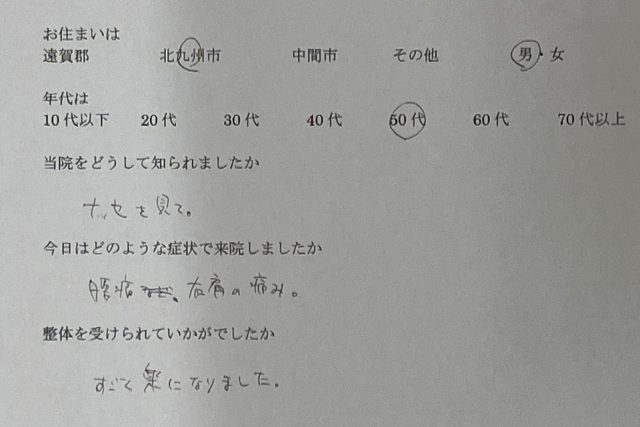 お住まいは
遠賀郡 北九州市 中間市 その他 男・女
年代は
10代以下 20代 30代 40代 50代 60代 70代以上
当院をどうして知られましたか
ナッセを見て。
今日はどのような症状で来院しましたか
腰痛 右肩の痛み。
整体を受けられていかがでしたか
すごく楽になりました。